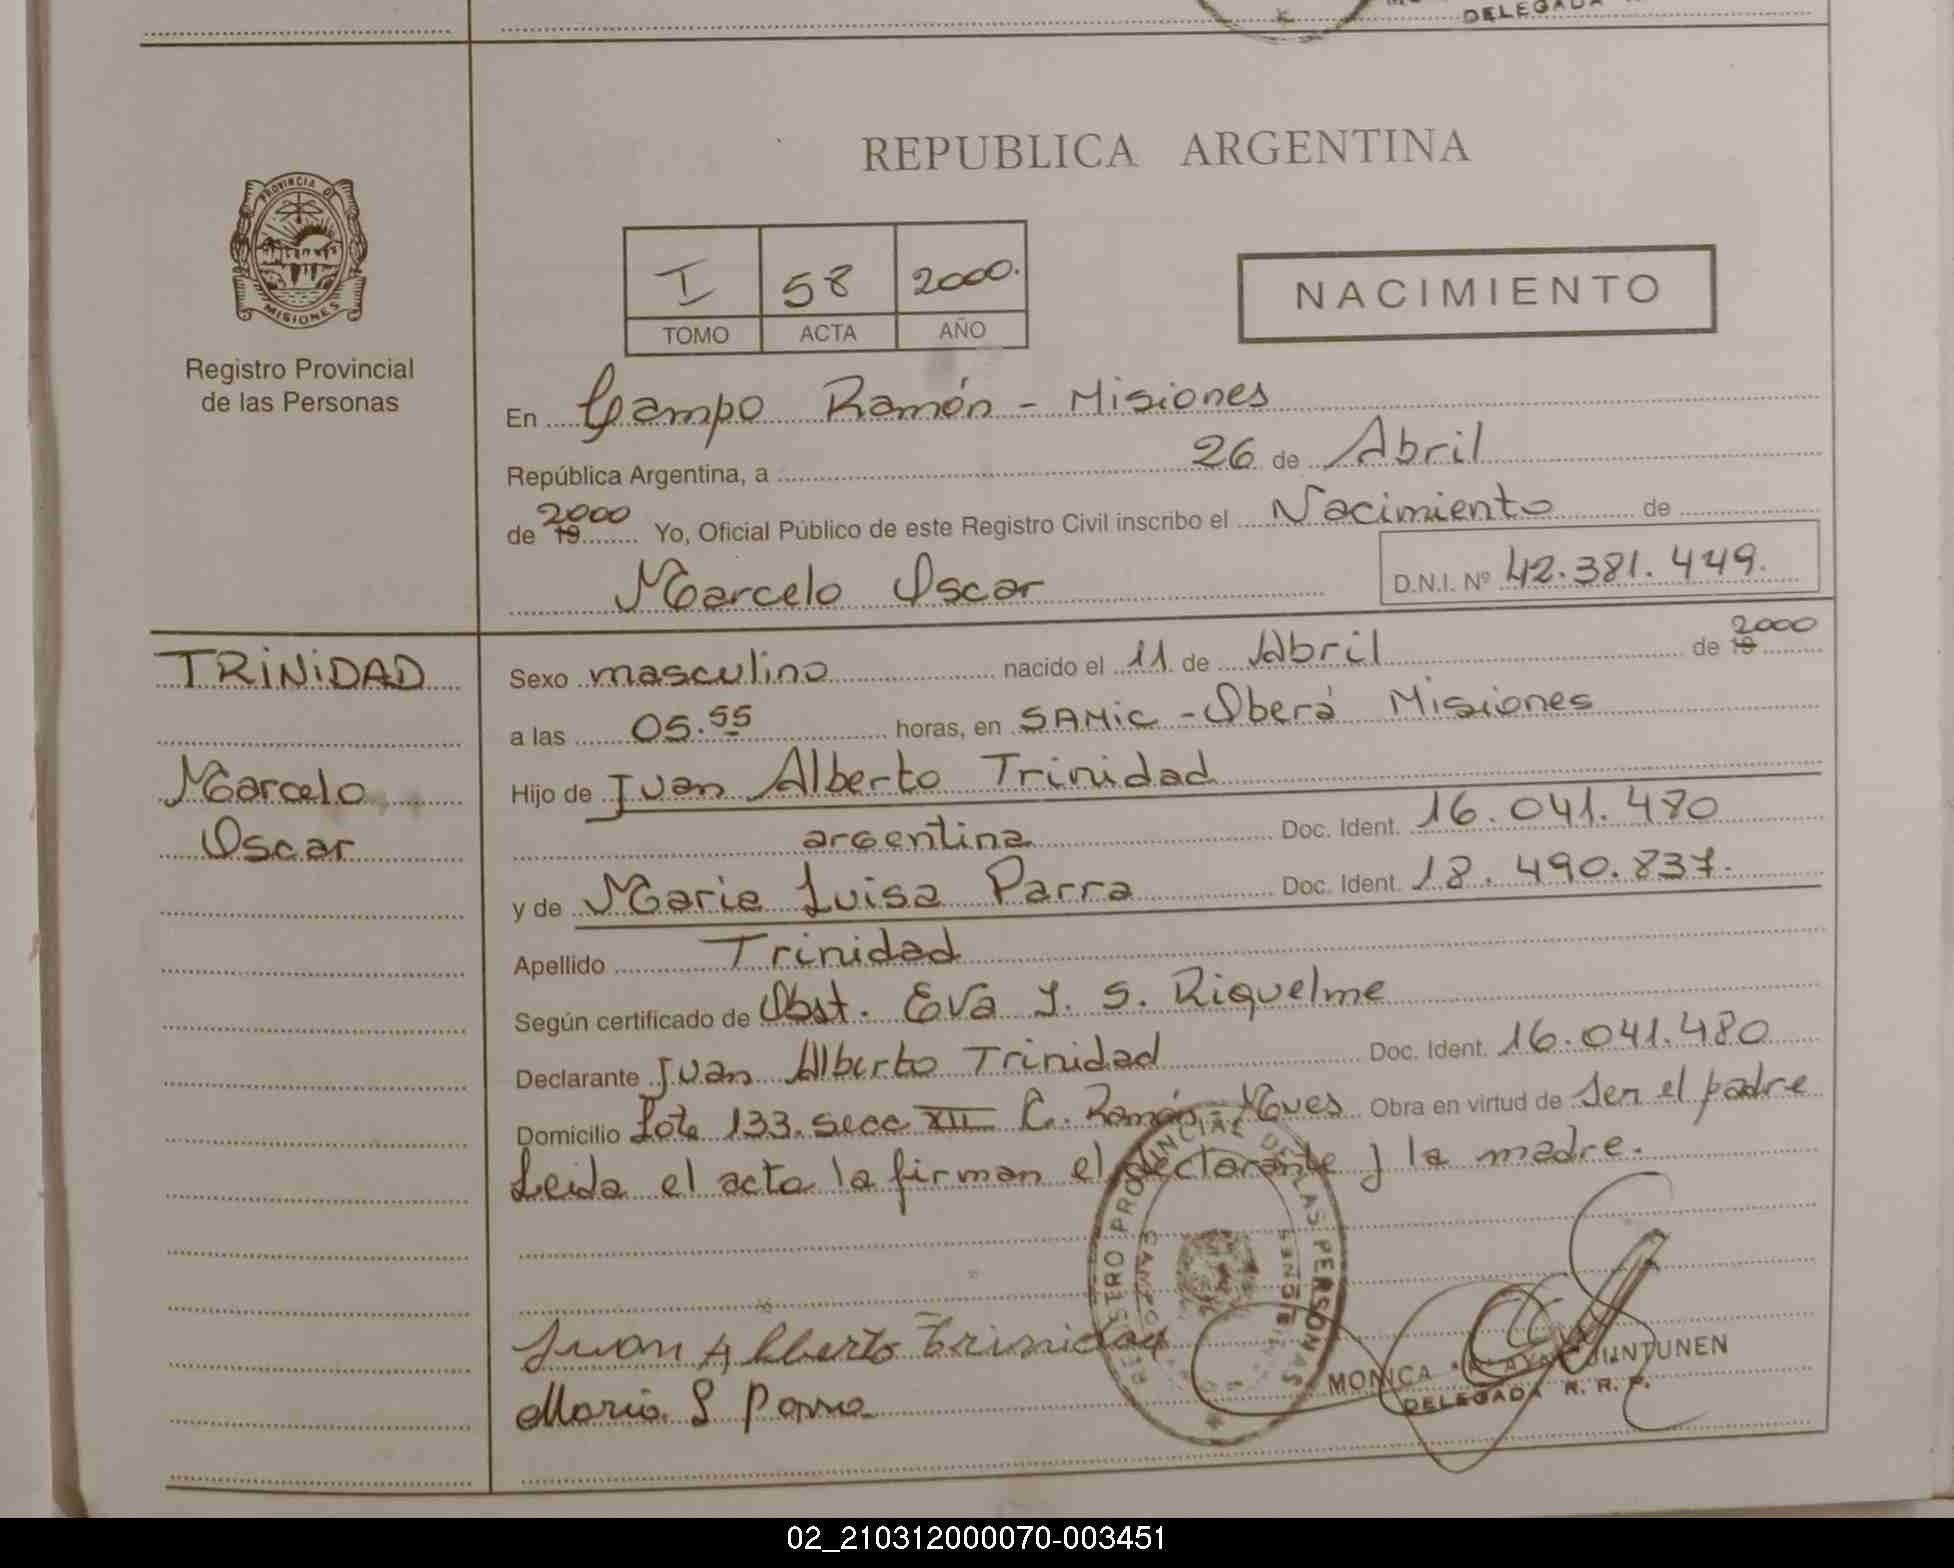 DELEGADA
REPUBLICA ARGENTINA
PROVINCIA D
MISIONES
Registro Provincial
de las Personas
I 58 2000.
TOMO ACTA AÑO
NACIMIENTO
En Campo Ramón - Misiones
República Argentina, a 26 de Abril
de 19 2000 Yo, Oficial Público de este Registro Civil inscribo el Nacimiento de
Marcelo Oscar D.N.I. Nº 42.381.449.
TRINIDAD
Marcelo
Oscar
Sexo masculino nacido el 11 de Abril de 19 2000
a las 05.55 horas, en SAMIC - Oberá Misiones
Hijo de Juan Alberto Trinidad
argentina Doc. Ident. 16.041.480
y de Maria Luisa Parra Doc. Ident. 18.490.837.
Apellido Trinidad
Según certificado de Obst. Eva Y. S. Riquelme
Declarante Juan Alberto Trinidad Doc. Ident. 16.041.480
Domicilio Lote 133. Secc XII C. Ramón - Mnes Obra en virtud de Ser el padre
Leida el acta la firman el declarante y la madre.
REGISTRO PROVINCIAL DE LAS PERSONAS
CAMPO
MISIONES
Juan Alberto Trinidad
Maria L Parra
MONICA JUNTUNEN
DELEGADA R. R. P.
02_210312000070-003451